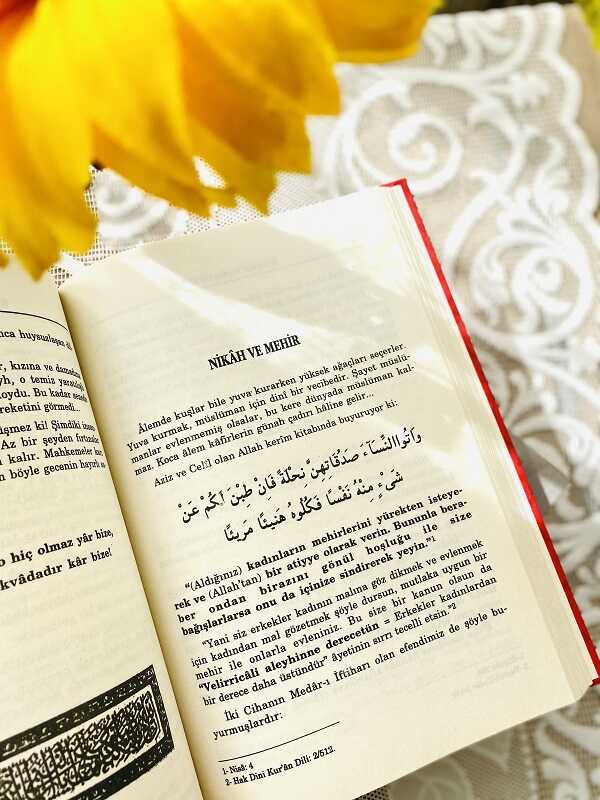 nca huysuzlaşan
r, kızına ve damadına
yh, o temiz yaratılış
oydu. Bu kadar sene
reketini görmedi...
işmez ki! Şimdiki insan
Az bir şeyden fırtınalar
kalır. Mahkemeler
n böyle gecenin hayırlı
o hiç olmaz yâr bize,
kvâdadır kâr bize!
NİKÂH VE MEHİR
Âlemde kuşlar bile yuva kurarken yüksek ağaçları seçerler.
Yuva kurmak, müslüman için dinî bir vecibedir. Şayet müslü-
manlar evlenmemiş olsalar, bu kere dünyada müslüman kal-
maz. Koca âlem kâfirlerin günah çadırı hâline gelir...
Aziz ve Celîl olan Allah kerim kitabında buyuruyor ki:
وَاٰتُوا النِّسَٓاءَ صَدُقَاتِهِنَّ نِحْلَةً فَاِنْ طِبْنَ لَكُمْ عَنْ
شَيْءٍ مِنْهُ نَفْسًا فَكُلُوهُ هَنِيـًٔا مَرِيـًٔا
“(Aldığınız) kadınların mehirlerini yürekten isteye-
rek ve (Allah’tan) bir atiyye olarak verin. Bununla bera-
ber ondan birazını gönül hoşluğu ile size
bağışlarlarsa onu da içinize sindirerek yeyin.”¹
“Yani siz erkekler kadının malına göz dikmek ve evlenmek
için kadından mal gözetmek şöyle dursun, mutlaka uygun bir
mehir ile onlarla evleniniz. Bu size bir kanun olsun da
“Velirricâli aleyhinne derecetün = Erkekler kadınlardan
bir derece daha üstündür” âyetinin sırrı tecelli etsin.”²
İki Cihanın Medâr-ı İftiharı olan efendimiz de şöyle bu-
yurmuşlardır:
1- Nisâ: 4
2- Hak Dini Kur’ân Dili: 2/512.